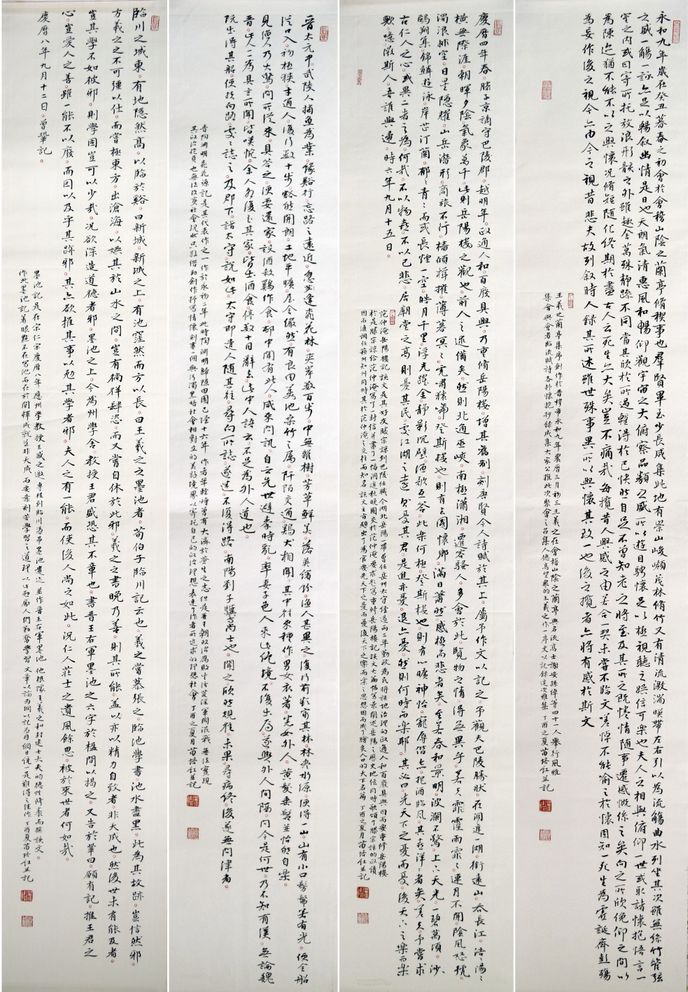 永和九年歲在癸丑暮春之初會於會稽山陰之蘭亭脩禊事也群賢畢至少長咸集此地有崇山峻領茂林脩竹又有清流激湍暎帶左右引以為流觴曲水列坐其次雖無絲竹管弦
之盛一觴一詠亦足以暢敘幽情是日也天朗氣清惠風和暢仰觀宇宙之大俯察品類之盛所以遊目騁懷足以極視聽之娛信可樂也夫人之相與俯仰一世或取諸懷抱悟言一
室之內或因寄所託放浪形骸之外雖趣舍萬殊靜躁不同當其欣於所遇暫得於己快然自足不知老之將至及其所之既惓情隨事遷感慨係之矣向之所欣俛仰之間以
為陳迹猶不能不以之興懷況脩短隨化終期於盡古人云死生亦大矣豈不痛哉每攬昔人興感之由若合一契未嘗不臨文嗟悼不能喻之於懷固知一死生為虛誕齊彭殤
為妄作後之視今亦由今之視昔悲夫故列敘時人錄其所述雖世殊事異所以興懷其致一也後之攬者亦將有感於斯文
慶曆四年春滕子京謫守巴陵郡越明年政通人和百廢具興乃重修岳陽樓增其舊制刻唐賢今人詩賦於其上屬予作文以記之予觀夫巴陵勝狀在洞庭一湖銜遠山吞長江浩浩湯湯
橫無際涯朝暉夕陰氣象萬千此則岳陽樓之大觀也前人之述備矣然則北通巫峽南極瀟湘遷客騷人多會於此覽物之情得無異乎若夫霪雨霏霏連月不開陰風怒號
濁浪排空日星隱耀山岳潛形商旅不行檣傾楫摧薄暮冥冥虎嘯猿啼登斯樓也則有去國懷鄉憂讒畏譏滿目蕭然感極而悲者矣至若春和景明波瀾不驚上下天光一碧萬頃沙
鷗翔集錦鱗游泳岸芷汀蘭郁郁青青而或長煙一空皓月千里浮光躍金靜影沉璧漁歌互答此樂何極登斯樓也則有心曠神怡寵辱偕忘把酒臨風其喜洋洋者矣嗟夫予嘗求
古仁人之心或異二者之為何哉不以物喜不以己悲居廟堂之高則憂其民處江湖之遠則憂其君是進亦憂退亦憂然則何時而樂耶其必曰先天下之憂而憂後天下之樂而樂
歟噫微斯人吾誰與歸時六年九月十五日
晉太元中武陵人捕魚為業緣谿行忘路之遠近忽逢桃花林夾岸數百步中無雜樹芳草鮮美落英繽紛漁人甚異之復前行欲窮其林林盡水源便得一山山有小口髣髴若有光便舍船
從口入初極狹才通人復行數十步豁然開朗土地平曠屋舍儼然有良田美池桑竹之屬阡陌交通雞犬相聞其中往來種作男女衣著悉如外人黃髮垂髫並怡然自樂
見漁人乃大驚問所從來具答之便要還家設酒殺雞作食村中聞有此人咸來問訊自云先世避秦時亂率妻子邑人來此絕境不復出焉遂與外人間隔問今是何世乃不知有漢無論魏
晉此人一一為具言所聞皆嘆惋餘人各復延至其家皆出酒食停數日辭去此中人語云不足為外人道也
既出得其船便扶向路處處誌之及郡下詣太守說如此太守即遣人隨其往尋向所誌遂迷不復得路南陽劉子驥高士也聞之欣然規往未果尋病終後遂無問津者
臨川之城東有地隱然而高以臨於谿曰新城新城之上有池窪然而方以長曰王羲之之墨池者荀伯子臨川記云也羲之嘗慕張芝臨池學書池水盡黑此為其故跡豈信然邪
方羲之之不可強以仕而嘗極東方出滄海以娛其意於山水之間豈有徜徉肆恣而又嘗自休於此邪羲之之書晚乃善則其所能蓋亦以精力自致者非天成也然後世未有能及者
豈其學不如彼邪則學固豈可以少哉況欲深造道德者邪墨池之上今為州學舍教授王君盛恐其不章也書晉王右軍墨池之六字於楹間以揭之又告於鞏曰願有記推王君之
心豈愛人之善雖一能不以廢而因以及乎其跡邪其亦欲推其事以勉其學者邪夫人之有一能而使後人尚之如此況仁人莊士之遺風餘思被於來世者何如哉
慶曆八年九月十二日曾鞏記